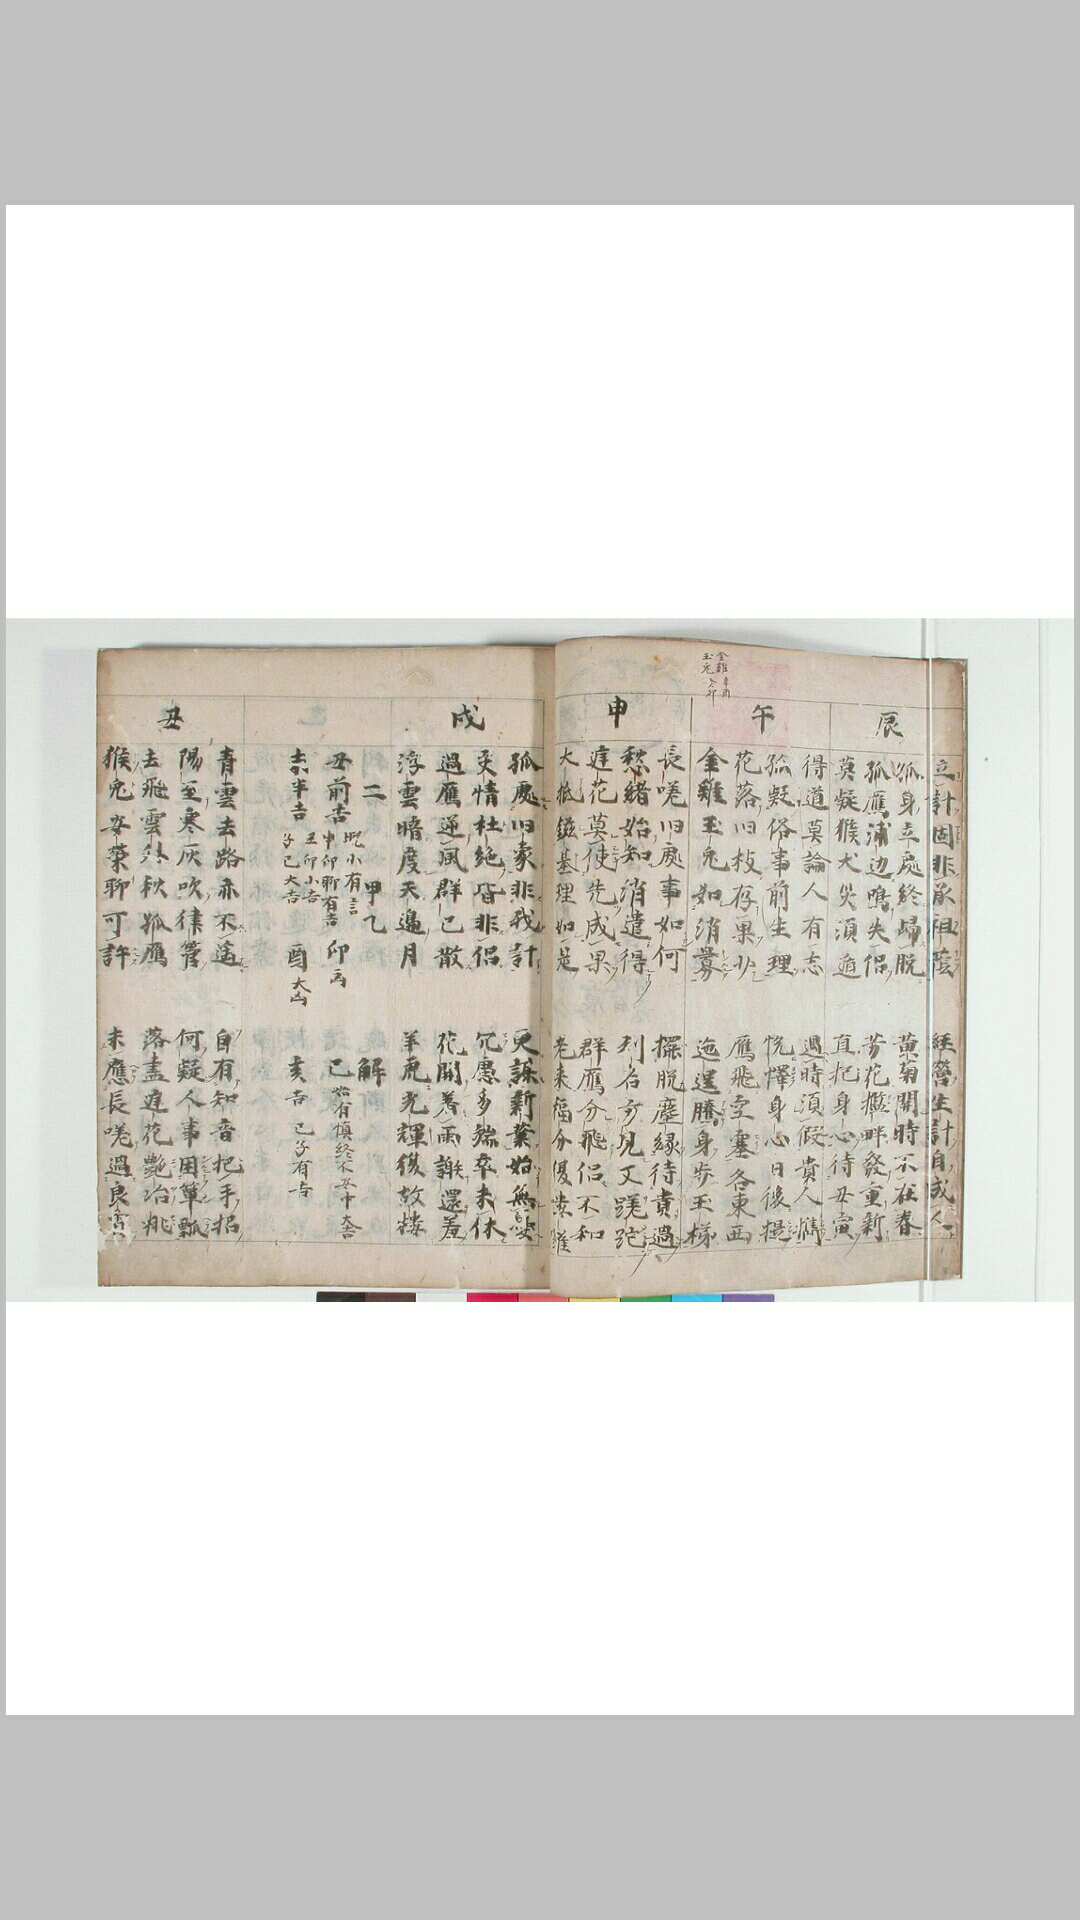 金雞 辛酉
玉兔 乙卯
辰
午
申
戌
丑
立計固非承祖蔭 經營生計自成人
孤身立處終歸脫 黃菊開時不在春
孤鴈浦边鳴失侶 芳花檻畔發重新
莫疑猴犬災須 直把身心待丑寅
得道莫論人有志 遇時須假貴人
孤疑俗事前生理 悅懌身心日後
花落旧枝存果少 鴈飛空塞各東西
金雞玉兔如消 迤邐騰身步玉梯
長嘆旧處事如何 擺脫塵緣待貴過
愁緒始知消遣得 利名方見又蹉跎
莛花莫使先成果 群鴈分飛侶不和
大抵鎡基理如是 老来福分優
孤處旧家非我計 更謀新業始無
受情杜絕皆非侶 冗慮多端卒未休
過鴈逆風群已散 花開着雨謝還羞
浮雲暗度天邊月 羊虎光輝復故接
二 甲乙 解
丑前吉 申卯聊有吉 卯凶 已
吉半吉 酉大凶 亥吉 已子有吉
青雲去路亦不遙 自有知音把手招
陽至寒灰吹律管 何疑人事困簞瓢
去飛雲外秋孤鴈 落盡庭花艷冶桃
猴兔安榮聊可許 未應長嘆過良宵